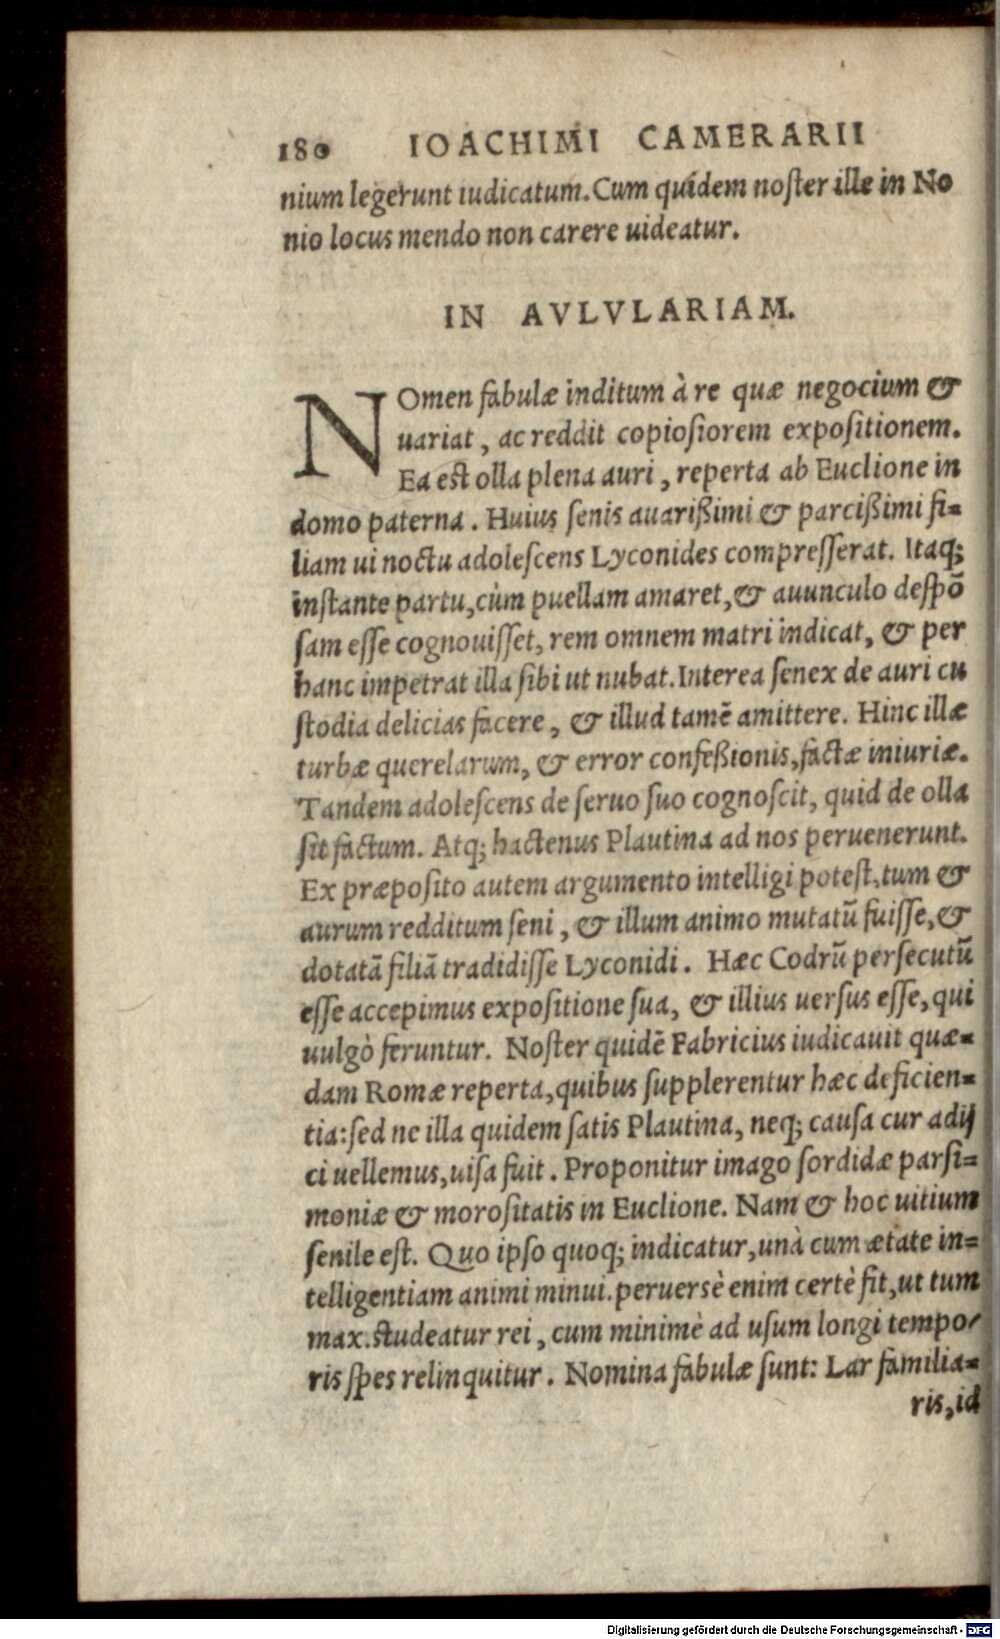 180 IOACHIMI CAMERARII
nium legerunt iudicatum. Cum quidem noster ille in No
nio locus mendo non carere uideatur.
IN AVLVLARIAM.
NOmen fabulæ inditum à re quæ negocium &
uariat, ac reddit copiosiorem expositionem.
Ea est olla plena auri, reperta ab Euclione in
domo paterna. Huius senis auarißimi & parcißimi fi=
liam ui noctu adolescens Lyconides compresserat. Itaq;
instante partu, cùm puellam amaret, & auunculo despõ
sam esse cognouisset, rem omnem matri indicat, & per
hanc impetrat illa sibi ut nubat. Interea senex de auri cu
stodia delicias facere, & illud tamẽ amittere. Hinc illæ
turbæ querelarum, & error confeßionis, factæ iniuriæ.
Tandem adolescens de seruo suo cognoscit, quid de olla
sit factum. Atq; hactenus Plautina ad nos peruenerunt.
Ex præposito autem argumento intelligi potest, tum &
aurum redditum seni, & illum animo mutatũ fuisse, &
dotatã filiã tradidisse Lyconidi. Hæc Codrũ persecutũ
esse accepimus expositione sua, & illius uersus esse, qui
uulgò feruntur. Noster quidẽ Fabricius iudicauit quæ=
dam Romæ reperta, quibus supplerentur hæc deficien=
tia: sed ne illa quidem satis Plautina, neq; causa cur adij
ci uellemus, uisa fuit. Proponitur imago sordidæ parsi=
moniæ & morositatis in Euclione. Nam & hoc uitium
senile est. Quo ipso quoq; indicatur, unà cum ætate in=
telligentiam animi minui. peruersè enim certè fit, ut tum
max. studeatur rei, cum minimè ad usum longi tempo/
ris spes relinquitur. Nomina fabulæ sunt: Lar familia=
ris, id
Digitalisierung gefördert durch die Deutsche Forschungsgemeinschaft - DFG